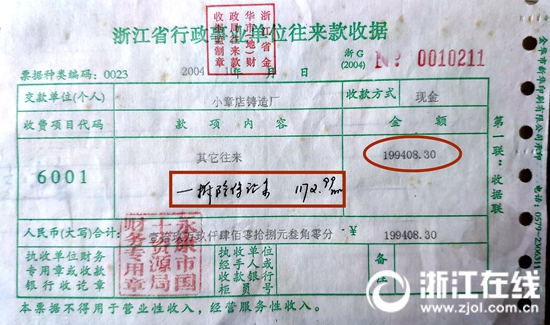 浙江省行政事业单位往来款收据
浙江省金
华市(地)财
政局往来款
收据监制章
浙G
(2004)
№ 0010211
票据种类编码：0023
2004 年 10 月 日
交款单位(个人)
小章店铸造厂
收款方式
现金
收费项目代码
款 项 内 容
金 额
其它往来
199408.30
6001
人民币(大写)合计：
玖仟肆佰零拾捌元叁角零分
¥
199408.30
执收单位财务
专用章或收款
银行收讫章
永康市国
土资源局
财务专用章
执收单位
经手人或
收款银行
柜员号
本票据不得用于营业性收入，经营服务性收入。
第一联：收据联
金华市新华印刷有限公司承印
0579-2306311
浙江在线
www.zjol.com.cn